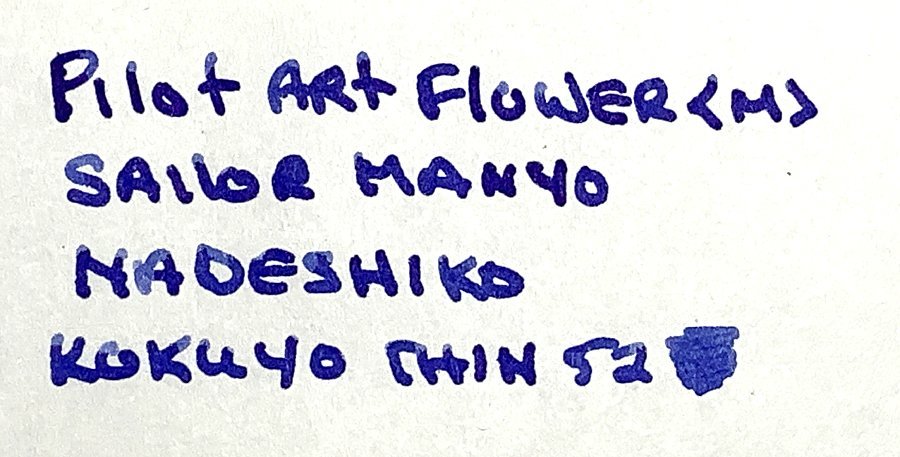 Pilot ART FlOWER <M>
SAILOR MANYO
NADESHIKO
KOKUYO THIN 52